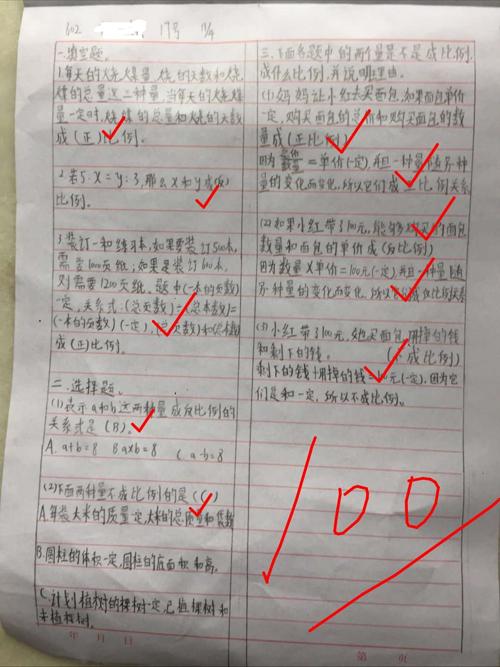 602 17号 17/4
一.填空题。
1.每天的烧煤量,烧的天数和烧
煤的总量这三种量,当每天的烧煤
量一定时,烧煤的总量和烧的天数
成(正)比例。
2.若5:x=y:3,那么x和y成(反)
比例。
3.装订一种练习本,如果要装订500本,
需要1000页纸;如果是装订600本,
则需要1200页纸,题中(一本的页数)
一定,关系式:(总页数)÷(总本数)=
(一本的页数)(一定),(总页数)和(总本数)
成(正)比例。
二.选择题。
(1)表示a和b这两种量成反比例的
关系式是(B)。
A.a+b=8 B.a×b=8 C.a-b=8
(2)下面两种量不成比例的是(C)
A.每袋大米的质量一定,大米的总质量和袋数
B.圆柱的体积一定,圆柱的底面积和高。
C.计划植树的棵树一定,已植棵树和
未植棵树。
年 月 日
三.下面各题中的两个量是不是成比例,
成什么比例,并说明理由。
(1)妈妈让小红去买面包,如果面包单价一
定,购买面包的总价和购买面包的数
量成(正比例)
因为总价/数量=单价(一定),并且一种量随另一种
量的变化而变化,所以它们成正比例关系
(2)如果小红带了100元,能够购买的面包
数量和面包的单价成(反比例)
因为数量×单价=100元(一定),并且一种量随
另一种量的变化而变化,所以它们成反比例关系
(3)小红带了100元,她买面包,用掉的钱
和剩下的钱。(不成比例)
剩下的钱+用掉的钱=100元(一定),因为它
们是和一定,所以不成比例。
100
第 页